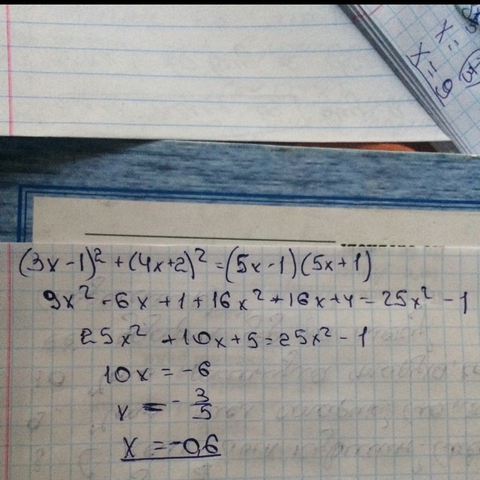 (3x-1)² + (4x+2)² = (5x-1)(5x+1)
9x² - 6x + 1 + 16x² + 16x + 4 = 25x² - 1
25x² + 10x + 5 = 25x² - 1
10x = -6
x = -3/5
x = -0,6